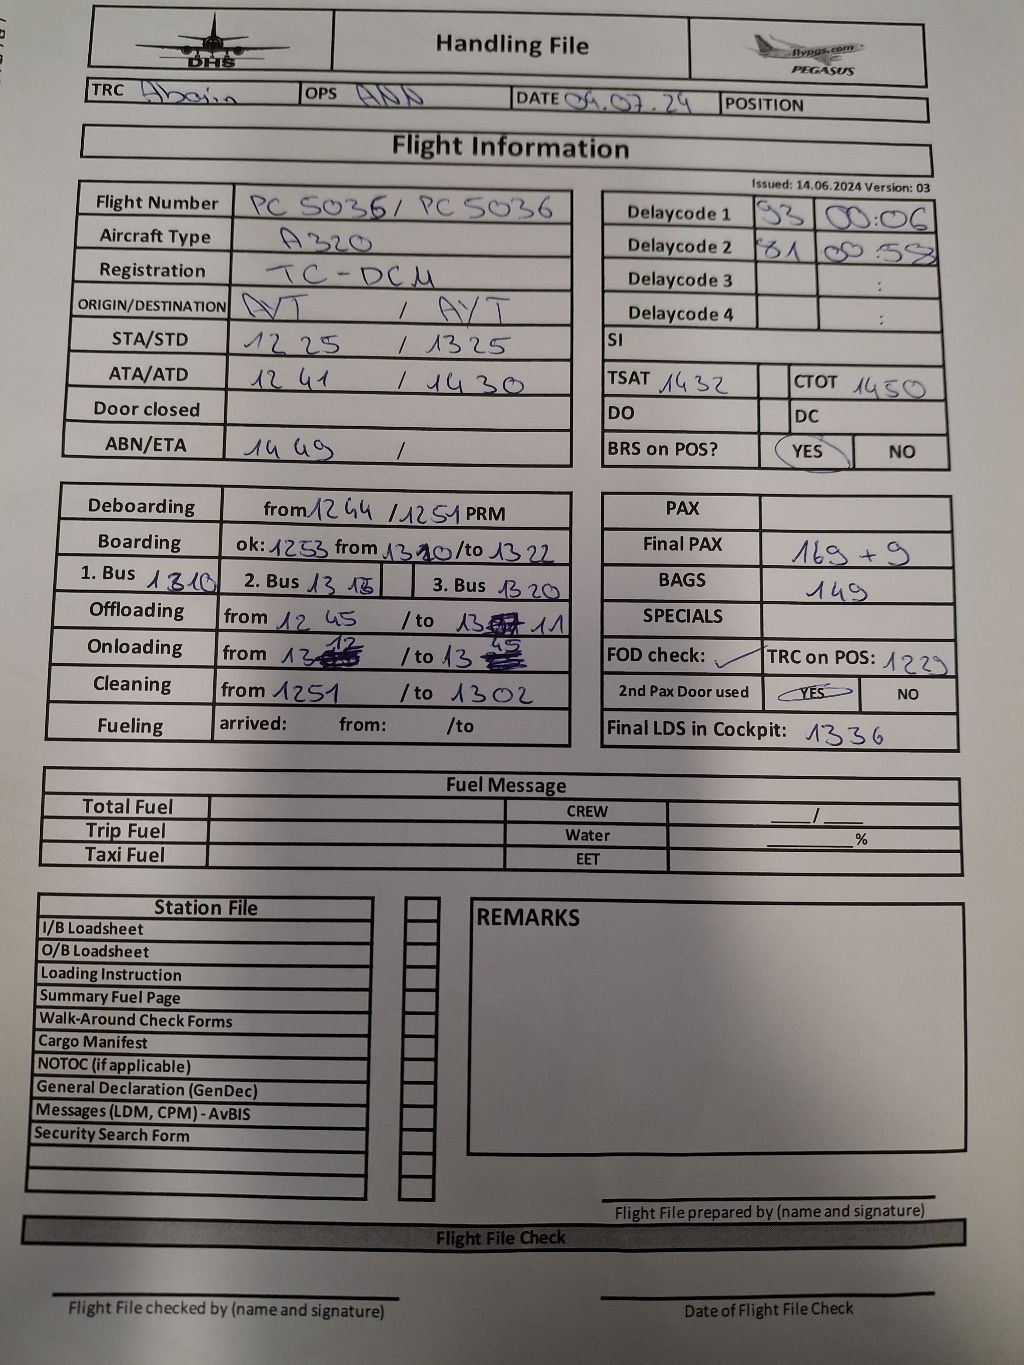 DHS
Handling File
flypgs.com
PEGASUS
TRC OPS ANN DATE 04.07.24 POSITION
Flight Information
Issued: 14.06.2024 Version: 03
Flight Number PC 5035/ PC 5036
Aircraft Type A320
Registration TC-DCM
ORIGIN/DESTINATION AYT / AYT
STA/STD 1225 / 1325
ATA/ATD 1241 / 1430
Door closed
ABN/ETA 1449 /
Delaycode 1 93 00:06
Delaycode 2 81 00:58
Delaycode 3 :
Delaycode 4 :
SI
TSAT 1432 CTOT 1450
DO DC
BRS on POS? YES NO
Deboarding from 1244 / 1251 PRM
Boarding ok: 1253 from 1310 /to 1322
1. Bus 1310 2. Bus 1315 3. Bus 1320
Offloading from 1245 /to 13 11
Onloading from 13 12 /to 13 25
Cleaning from 1251 /to 1302
Fueling arrived: from: /to
PAX
Final PAX 169 + 9
BAGS 149
SPECIALS
FOD check: ✓ TRC on POS: 1229
2nd Pax Door used YES NO
Final LDS in Cockpit: 1336
Fuel Message
Total Fuel CREW ____/____
Trip Fuel Water ________%
Taxi Fuel EET
Station File
I/B Loadsheet
O/B Loadsheet
Loading Instruction
Summary Fuel Page
Walk-Around Check Forms
Cargo Manifest
NOTOC (if applicable)
General Declaration (GenDec)
Messages (LDM, CPM) - AvBIS
Security Search Form
REMARKS
Flight File prepared by (name and signature)
Flight File Check
Flight File checked by (name and signature)
Date of Flight File Check